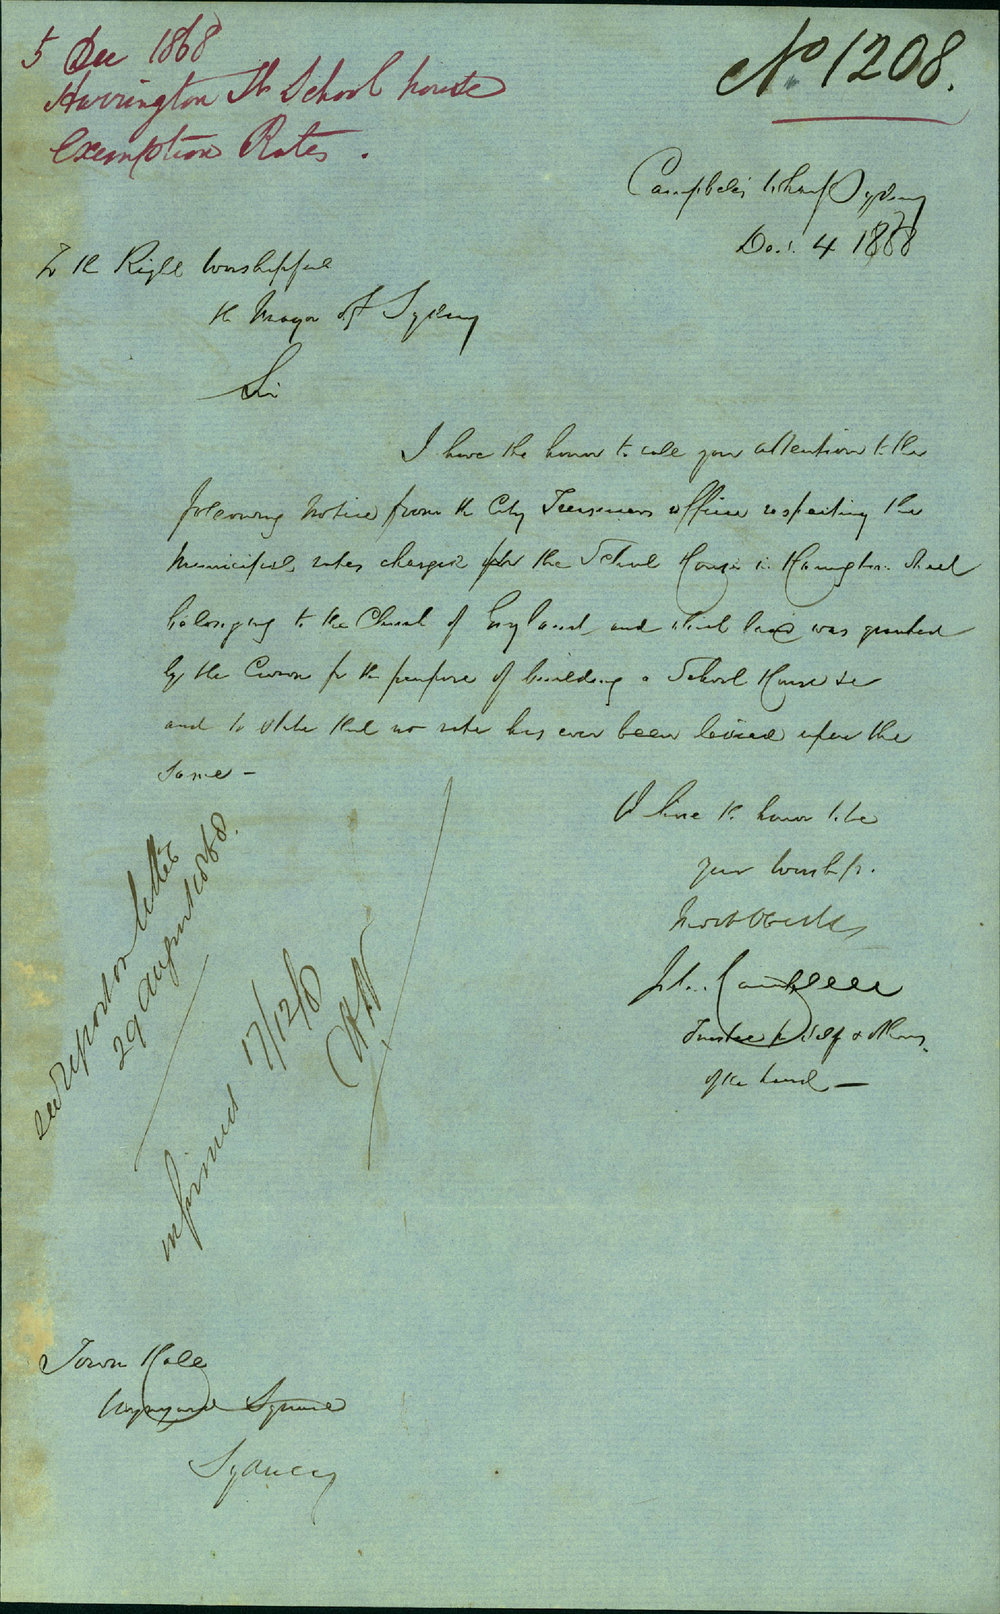 5 Dec 1868
Harrington St School house
Exemption Rates.
No 1208.
Campbells Wharf Sydney
Dec. 4 1868
To the Right Worshipful
the Mayor of Sydney
Sir
I have the honor to call your attention to the
following notice from the City Treasurers office respecting the
Municipal rates charged for the School House in Harrington Street
belonging to the Church of England and which land was granted
by the Crown for the purpose of building a School House &c
and to state that no rates has ever been levied upon the
same -
I have the honor to be
your Worships.
Most Obedt
John Campbell
Trustee for self & others
of the land -
see report on letter
29 August 1868.
informed 17/12/8
Town Hall
Wynyard Square
Sydney